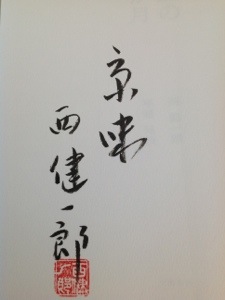 京味
西健一郎